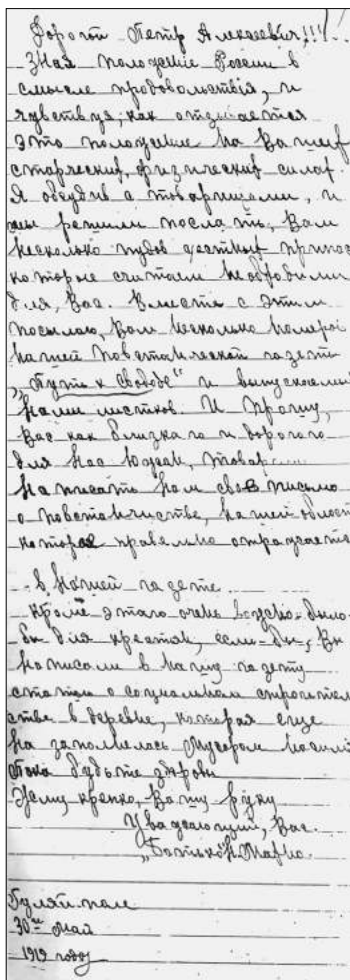 Дорогой Петр Алексеевич!!!
Зная положение России в
смысле продовольствия, и
чувствуя, как отзывается
это положение на Ваших
старческих, физических силах.
Я обсудив с товарищами, и
мы решили послать, Вам
несколько пудов съестных припас
которые считаем необходими
для, Вас. Вместе с этим
посылаю, Вам несколько номеро
нашей повстанческой газеты
„Путь к Свободе" и выпускаемы
нами листков. И прошу,
Вас как близкаго и дорогого
для нас южан, товар
написать нам своё письмо
о повстанчистве, нашей област
которае правельно отражаетс
в нашей газете
кроме этаго очень важно было
бы для крестьян, если-бы, Вы
написали в нашу газету
статью о социальном строител
стве в деревне, которая еще
не заполнелась мусором насили
Пока будьте здоровы
Жему крепко, Вашу руку
Уважающий, Вас.
„Батько" Н. Махно.
Гуляй поле
30го Май
1919 года